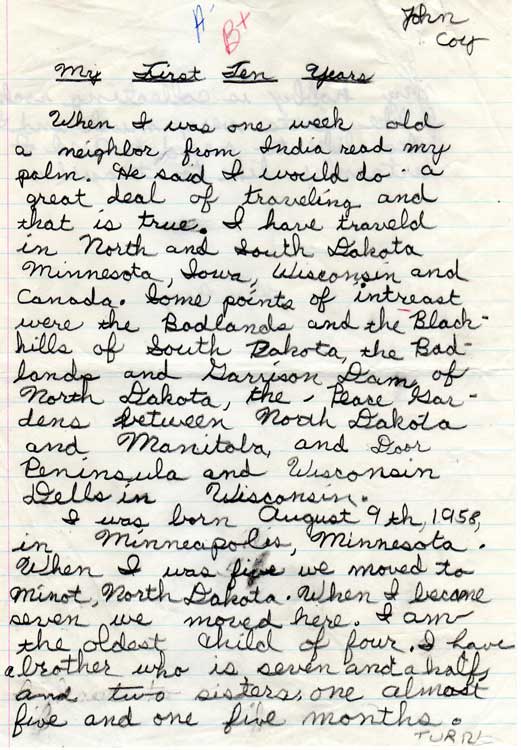 A-
B+
John
Coy
My First Ten Years
When I was one week old
a neighbor from India read my
palm. He said I would do a
great deal of traveling and
that is true. I have traveld
in North and South Dakota
Minnesota, Iowa, Wisconsin and
Canada. Some points of intreast
were the Badlands and the Black-
hills of South Dakota, the Bad-
lands and Garrison Dam, of
North Dakota, the Peace Gar-
dens between North Dakota
and Manitoba, and Door
Peninsula and Wisconsin
Dells in Wisconsin.
I was born August 9th, 1958,
in Minneapolis, Minnesota.
When I was five we moved to
Minot, North Dakota. When I became
seven we moved here. I am
the oldest child of four. I have
a brother who is seven and a half,
and two sisters, one almost
five and one five months.
TURN